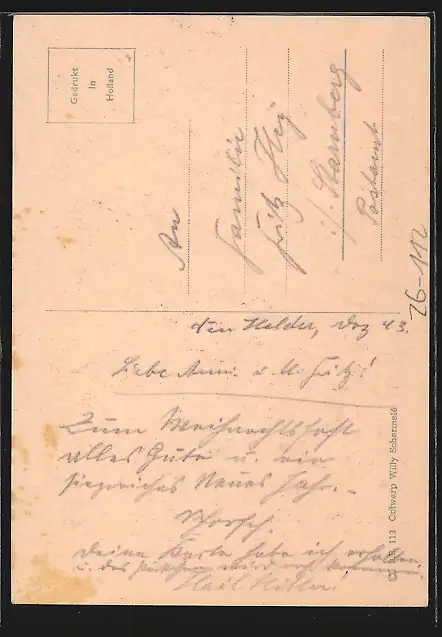 Gedrukt
in
Holland
An
Familie
Fritz
i/ Starnberg
Postamt
26-112
den Helder, Dez 43.
Liebe Anni u. Fritz!
Zum Weihnachtsfest
alles Gute u. ein
siegreiches Neues Jahr.-
Schorsch.
Deine Karte habe ich erhalten.
u. das Päckchen wird
Heil Hitler!
112 Ontwerp Willy Schermelé